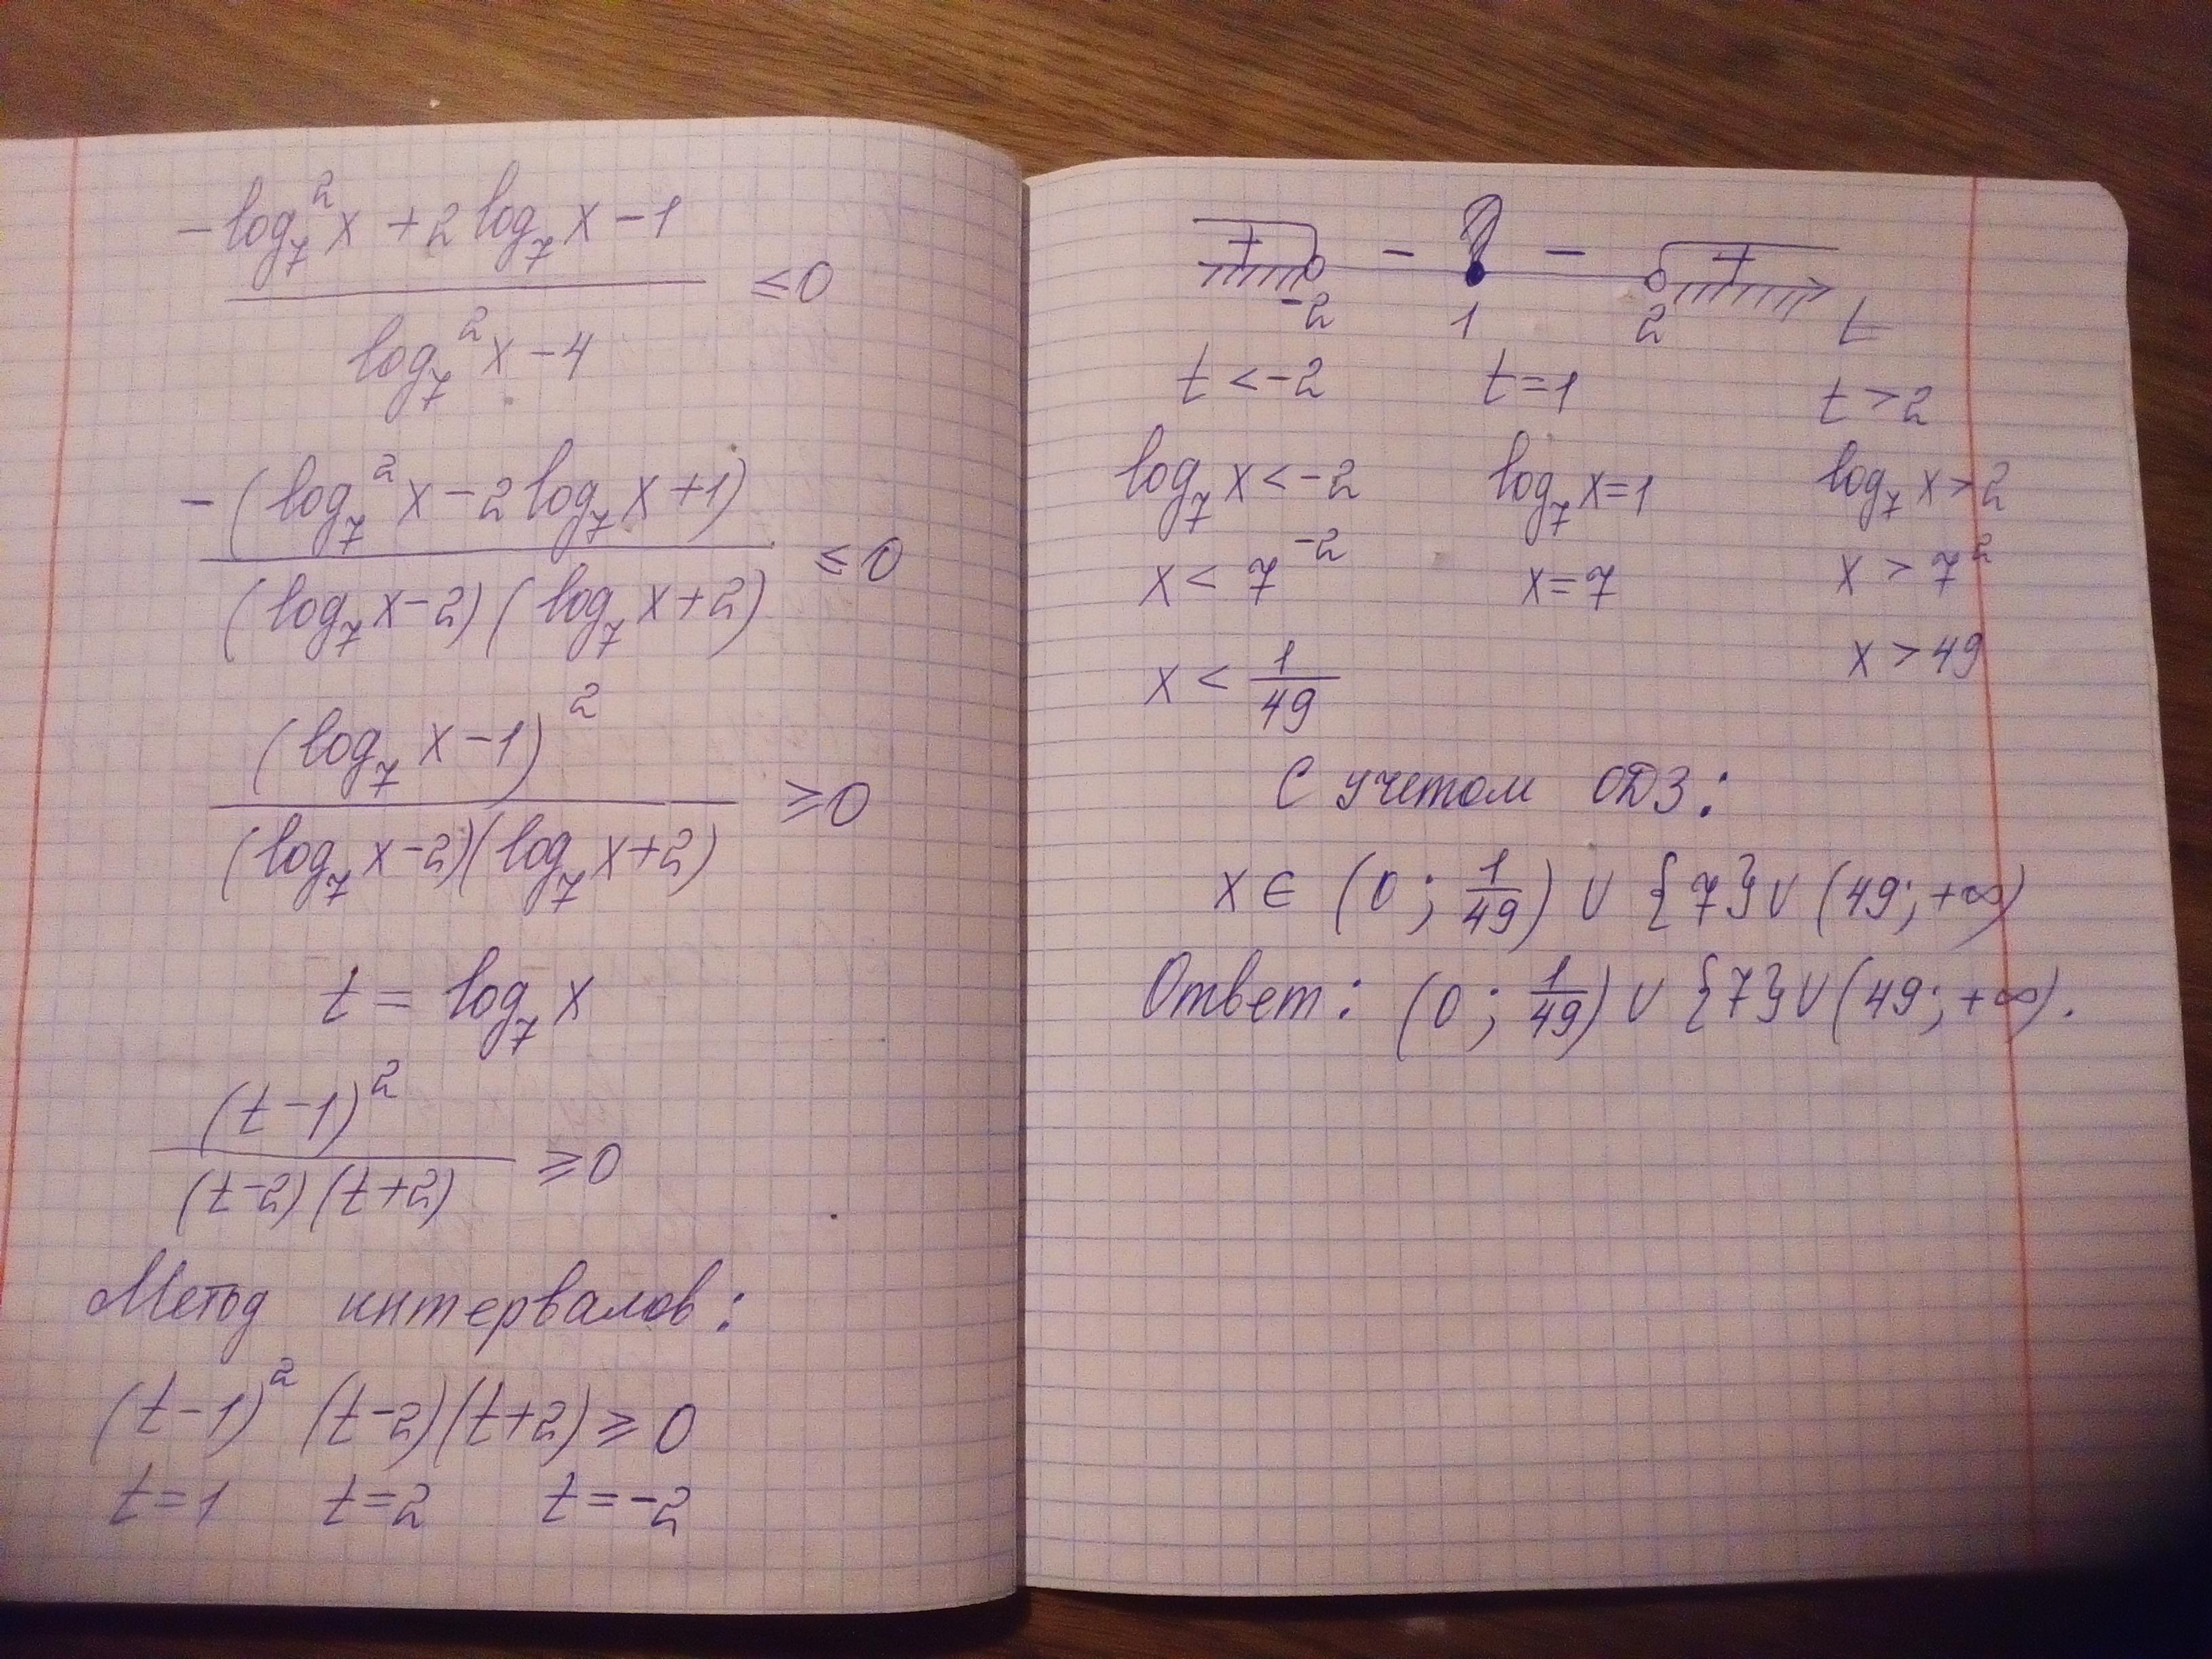 -log₇²x + 2log₇x - 1
≤ 0
log₇²x - 4
-(log₇²x - 2log₇x + 1)
≤ 0
(log₇x - 2)(log₇x + 2)
(log₇x - 1)²
≥ 0
(log₇x - 2)(log₇x + 2)
t = log₇x
(t - 1)²
≥ 0
(t - 2)(t + 2)
Метод интервалов:
(t - 1)²(t - 2)(t + 2) ≥ 0
t = 1 t = 2 t = -2
+ - - +
-2 1 2 t
t < -2 t = 1 t > 2
log₇x < -2 log₇x = 1 log₇x > 2
x < 7⁻² x = 7 x > 7²
x < 1/49 x > 49
С учетом ОДЗ:
x ∈ (0; 1/49) ∪ {7} ∪ (49; +∞)
Ответ: (0; 1/49) ∪ {7} ∪ (49; +∞).